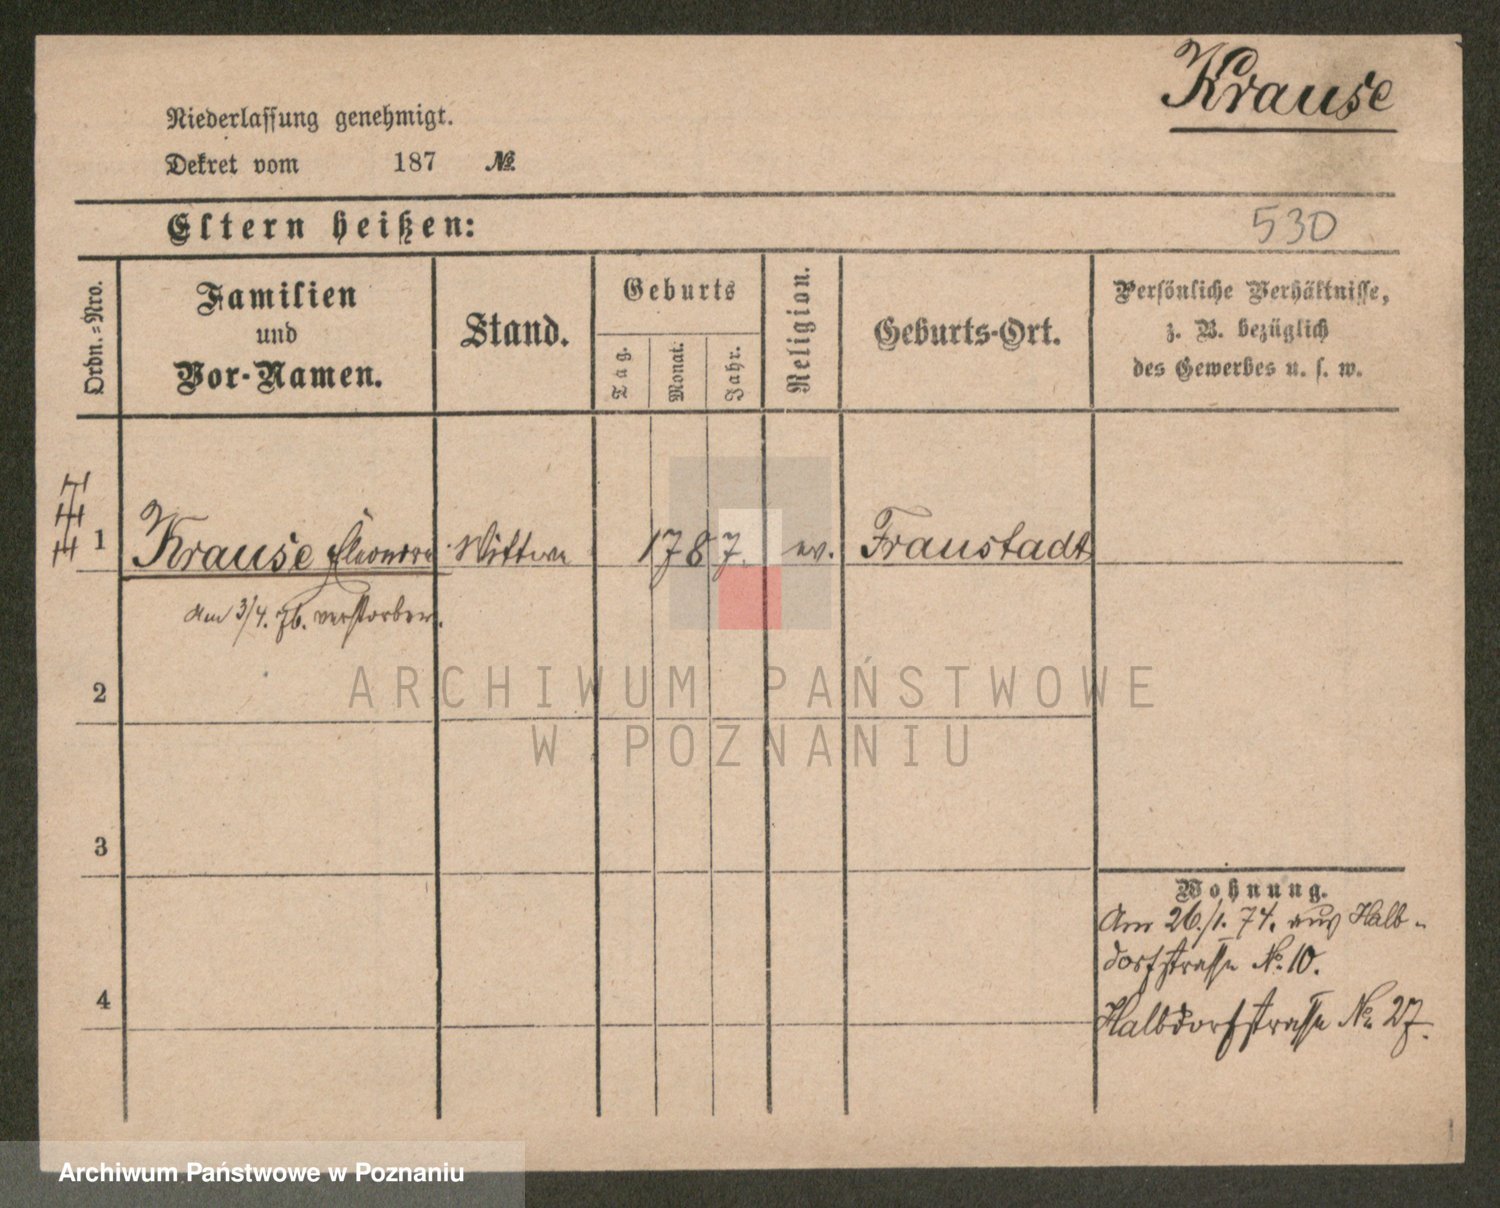 Krause
Niederlassung genehmigt.
Dekret vom 187 №.
Eltern heißen:
530
Ordn.=Nro.
Familien
und
Vor-Namen.
Stand.
Geburts
Tag.
Monat.
Jahr.
Religion.
Geburts-Ort.
Persönliche Verhältnisse,
z. B. bezüglich
des Gewerbes u. s. w.
1 Krause Eleonore Wittwe 1787. ev. Fraustadt
am 3/4. 76. verstorben.
2
3
4
Wohnung.
Am 26./1. 74. aus Halb-
dorfstrasse No. 10.
Halbdorfstrasse No. 27.
ARCHIWUM PAŃSTWOWE
W POZNANIU
Archiwum Państwowe w Poznaniu